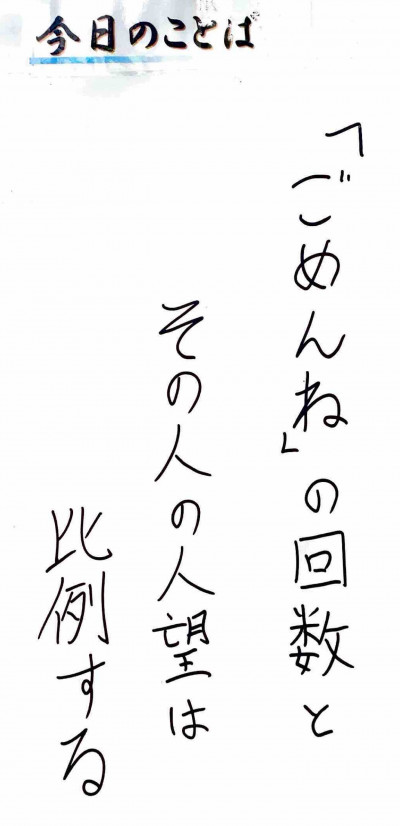 今日のことば
「ごめんね」の回数と
その人の人望は
比例する